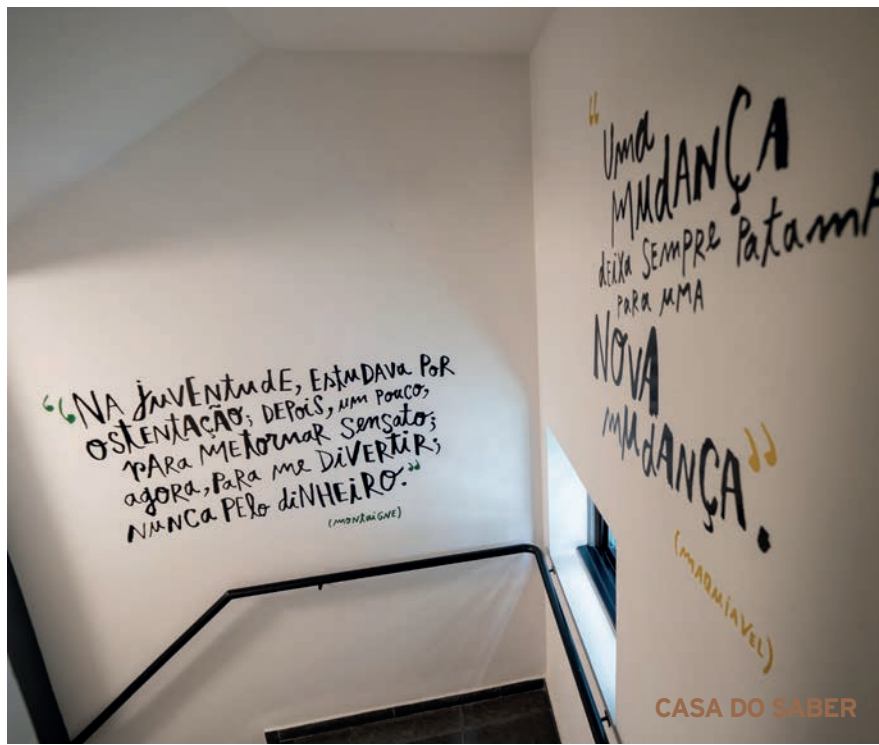 “NA JUVENTUDE, ESTUDAVA POR
OSTENTAÇÃO; DEPOIS, UM POUCO,
PARA ME TORNAR SENSATO;
AGORA, PARA ME DIVERTIR;
NUNCA PELO DINHEIRO.”
(MONTAIGNE)
“Uma
MUDANÇA
DEIXA SEMPRE PATAMA
PARA UMA
NOVA
MUDANÇA”.
(MAQUIAVEL)
CASA DO SABER